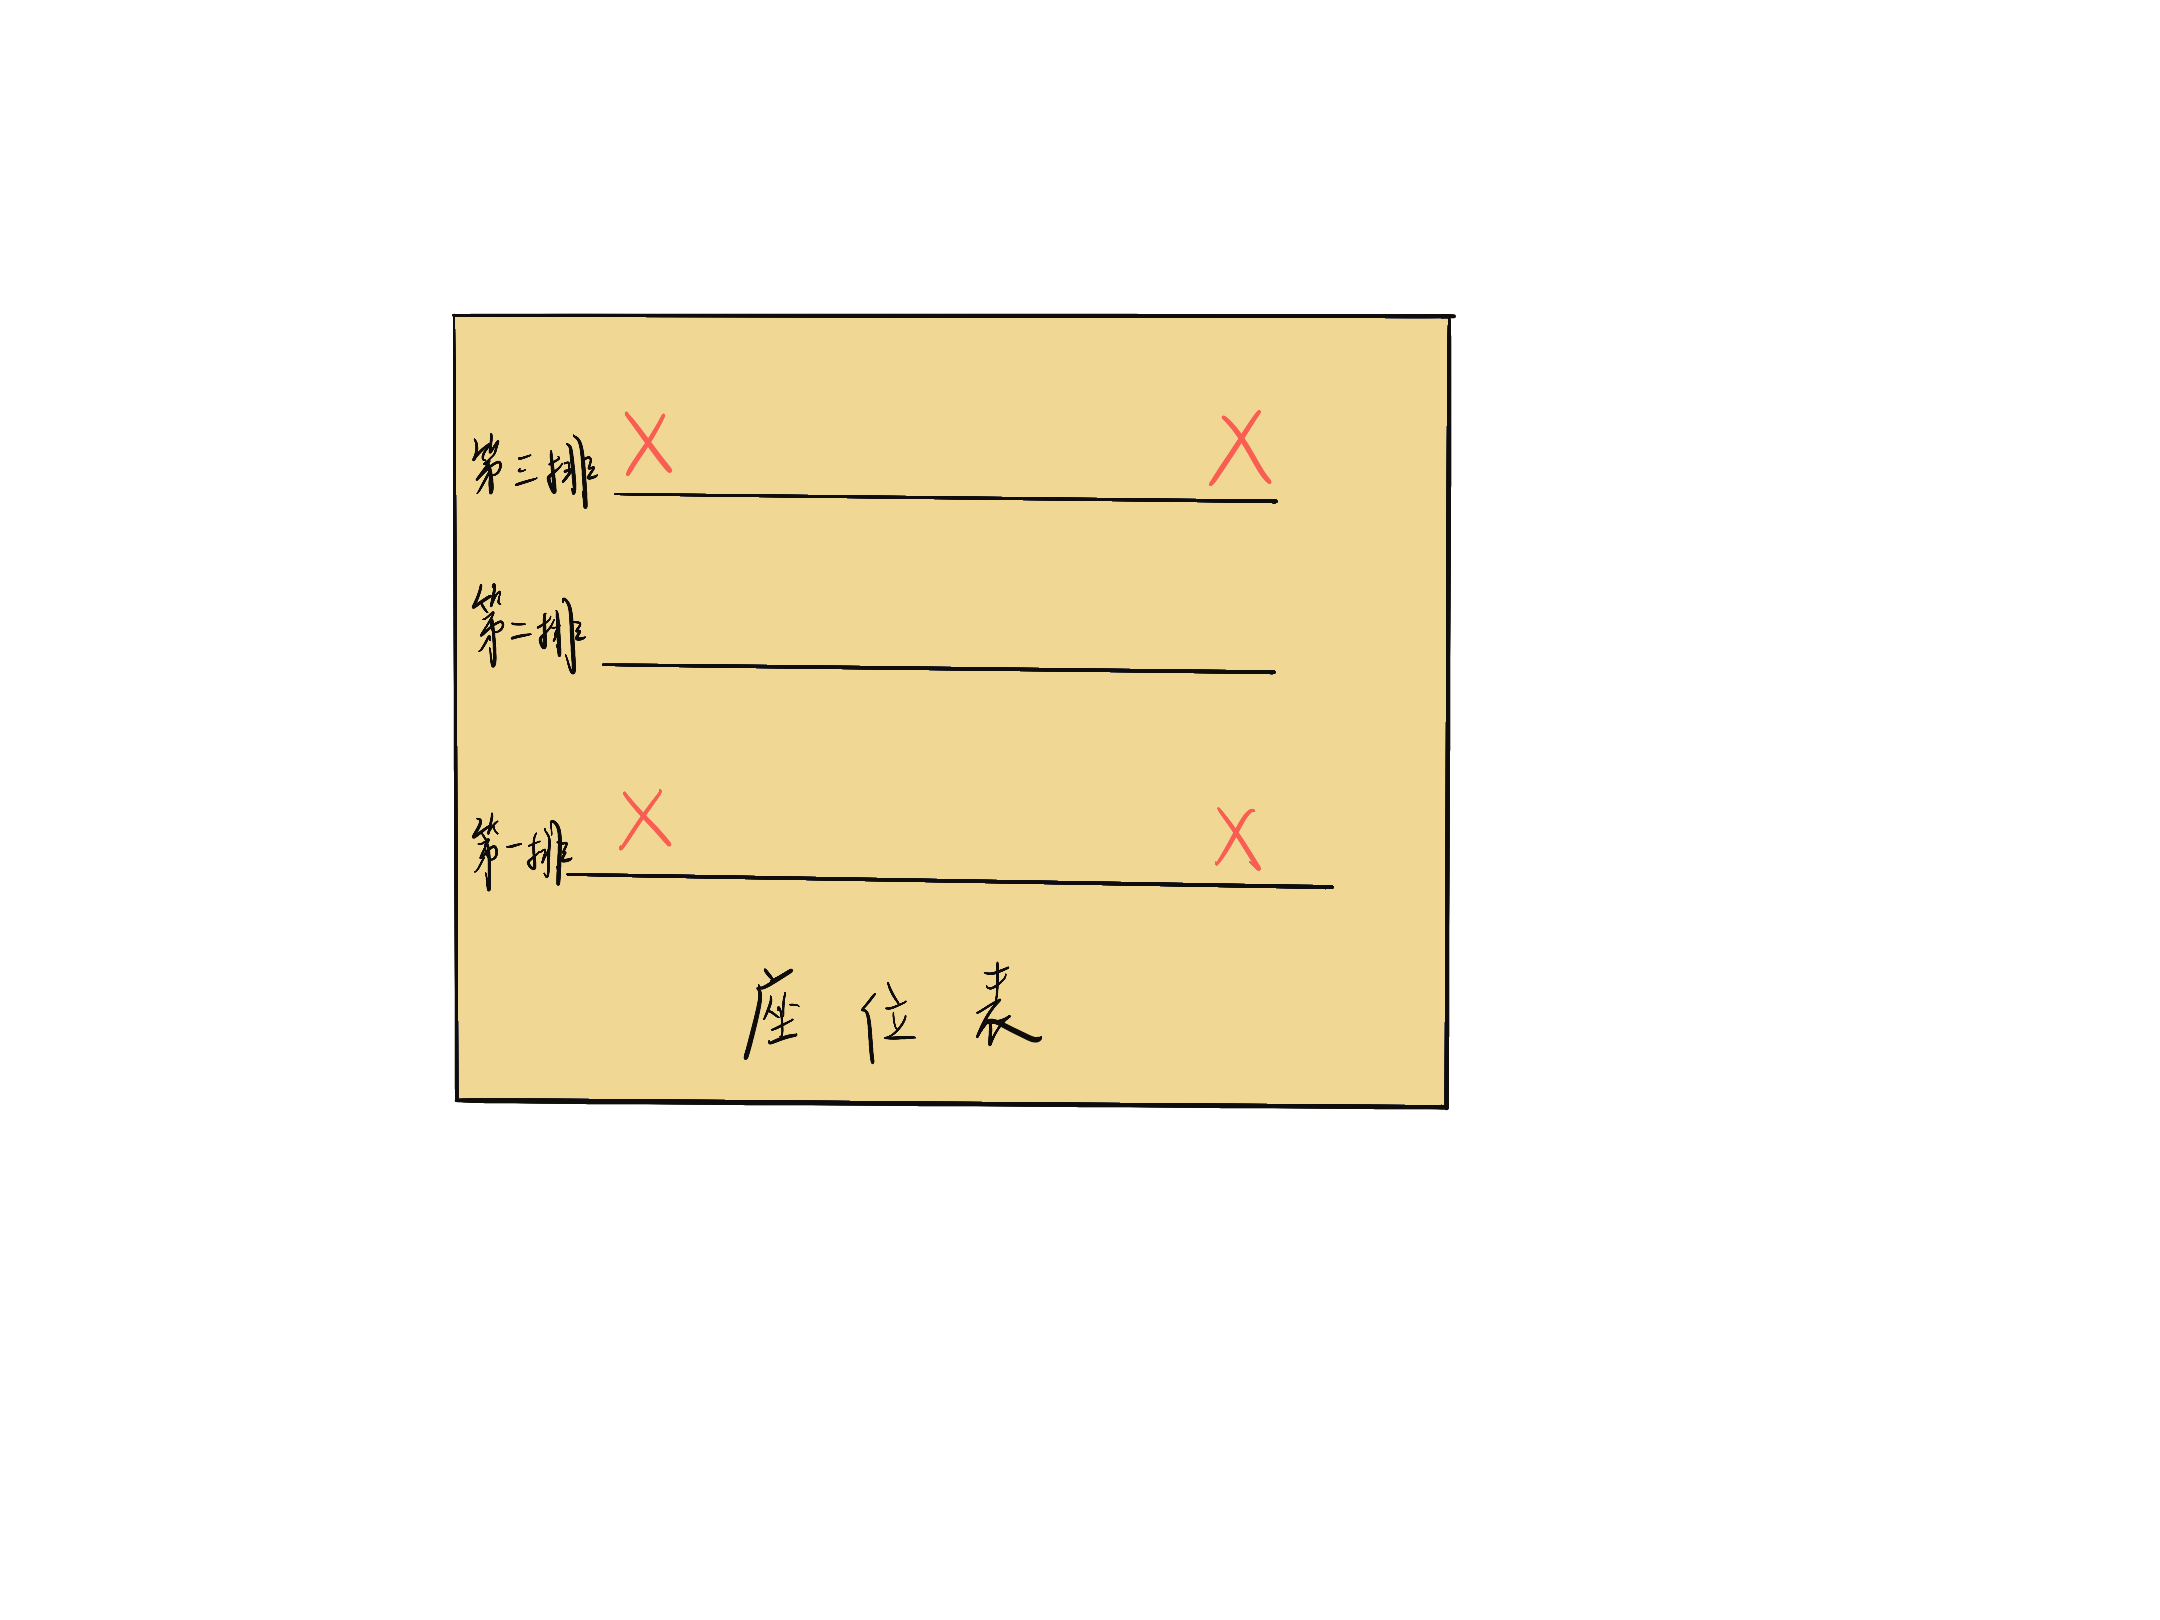 第三排 X X
第二排
第一排 X X
座位表